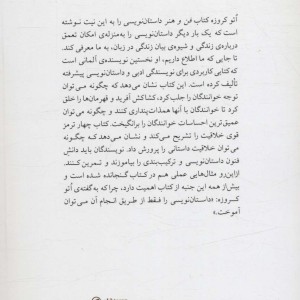 اُتو کروزه کتاب فن و هنر داستان‌نویسی را به این نیت نوشته
است که یک بار دیگر داستان‌نویسی را به‌منزله‌ی امکان تعمق
درباره‌ی زندگی و شیوه‌ی بیان زندگی در زبان، به ما معرفی کند.
تا جایی که ما اطلاع داریم، او نخستین نویسنده‌ی آلمانی است
که کتابی کاربردی برای نویسندگی ادبی و داستان‌نویسی پیشرفته
تألیف کرده است. این کتاب نشان می‌دهد که چگونه می‌توان
توجه خوانندگان را جلب کرد، کشاکش آفرید و قهرمان‌ها را خلق
کرد تا خوانندگان با آنها همذات‌پنداری کنند و چگونه می‌توان
عمیق‌ترین احساسات خوانندگان را برانگیخت. کتاب چهار ترمز
قوی خلاقیت را تشریح می‌کند و نشان می‌دهد که چگونه
می‌توان خلاقیت داستانی را پرورش داد. نویسندگان باید دانش
فنون داستان‌نویسی و ترکیب‌بندی را بیاموزند و تمرین کنند.
ازاین‌رو مثال‌هایی عملی هم در کتاب گنجانده شده است و
بیش‌از همه این جنبه از کتاب اهمیت دارد، چرا که به‌گفته‌ی اُتو
کروزه: «داستان‌نویسی را فقط از طریق انجام آن می‌توان
آموخت.»